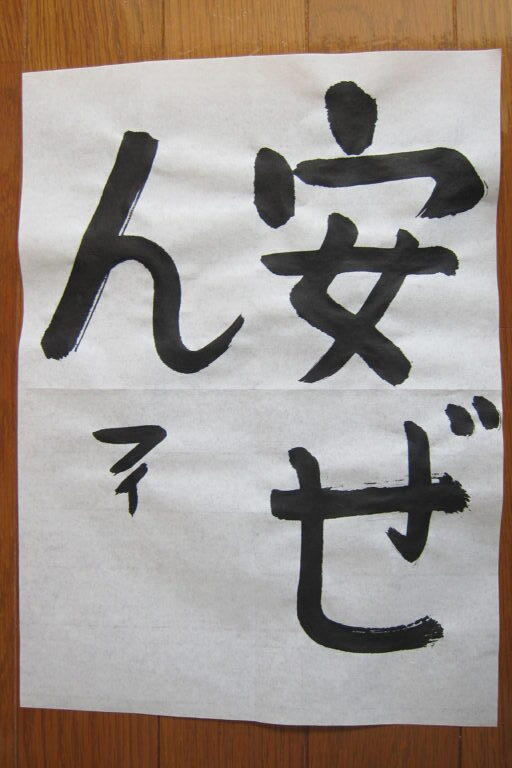 安ぜ
ん
マイ